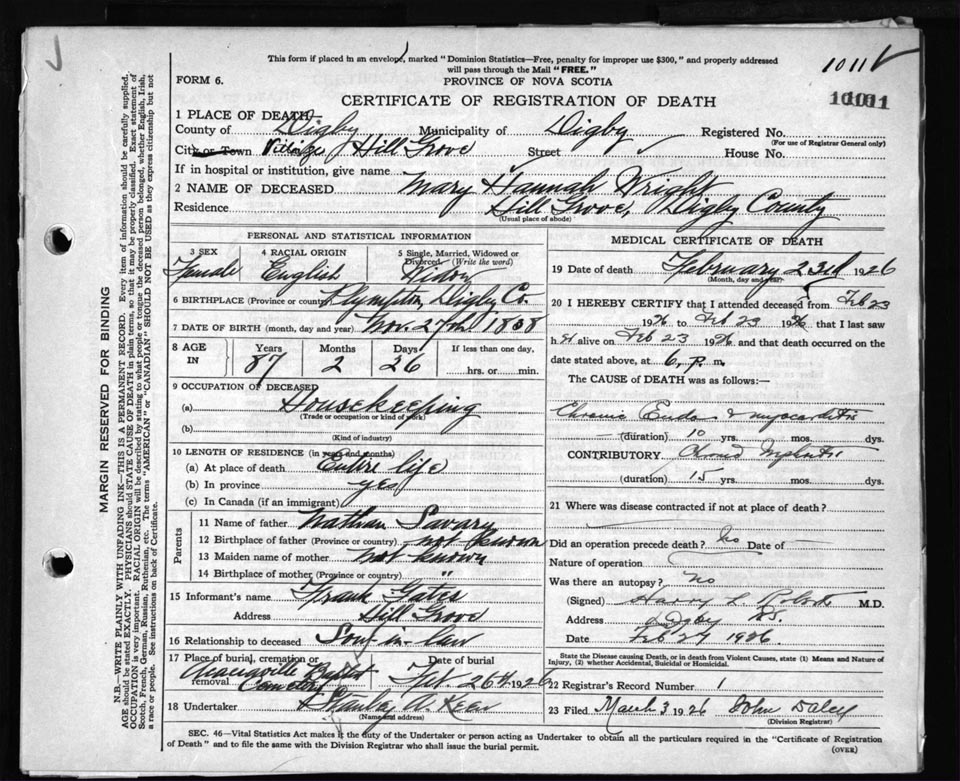 This form if placed in an envelope, marked "Dominion Statistics—Free, penalty for improper use $300," and properly addressed
will pass through the Mail "FREE."
1011
FORM 6.
PROVINCE OF NOVA SCOTIA
CERTIFICATE OF REGISTRATION OF DEATH
1 PLACE OF DEATH—
County of Digby Municipality of Digby Registered No.
(For use of Registrar General only)
City or Town Village Hill Grove Street House No.
If in hospital or institution, give name
2 NAME OF DECEASED Mary Hannah Wright
Residence Hill Grove, Digby County
(Usual place of abode)
PERSONAL AND STATISTICAL INFORMATION
3 SEX 4 RACIAL ORIGIN 5 Single, Married, Widowed or
Divorced (Write the word)
Female English Widow
6 BIRTHPLACE (Province or county) Plympton, Digby Co.
7 DATE OF BIRTH (month, day and year) Nov. 27th 1838
8 AGE IN Years Months Days If less than one day,
87 2 26 hrs. or min.
9 OCCUPATION OF DECEASED
(a) Housekeeping
(Trade or occupation or kind of work)
(b)
(Kind of industry)
10 LENGTH OF RESIDENCE (in years and months)
(a) At place of death Entire life
(b) In province yes
(c) In Canada (if an immigrant)
Parents
11 Name of father Nathan Savary
12 Birthplace of father (Province or county) not known
13 Maiden name of mother not known
14 Birthplace of mother (Province or county) "
15 Informant's name Frank Gates
Address Hill Grove
16 Relationship to deceased Son-in-law
17 Place of burial, cremation or Date of burial
removal Baptist Cemetery Feb. 26th 1926
18 Undertaker Stanley
(Name and address)
MEDICAL CERTIFICATE OF DEATH
19 Date of death February 23rd 1926
(Month, day and year)
20 I HEREBY CERTIFY that I attended deceased from Feb 23
1926 to Feb 23 1926 that I last saw
h er alive on Feb 23 1926 and that death occurred on the
date stated above, at 6 p.m.
The CAUSE of DEATH was as follows:—
Chronic Endo & myocarditis
(duration) 10 yrs. mos. dys.
CONTRIBUTORY
(duration) 15 yrs. mos. dys.
21 Where was disease contracted if not at place of death?
Did an operation precede death? No Date of —
Nature of operation
Was there an autopsy? No
(Signed) Harry L. M.D.
Address Digby N.S.
Date Feb 27 1926
State the Disease causing Death, or in death from Violent Causes, state (1) Means and Nature of
Injury, (2) whether Accidental, Suicidal or Homicidal.
22 Registrar's Record Number 1
23 Filed March 3 1926 John Daley
(Division Registrar)
SEC. 46—Vital Statistics Act makes it the duty of the Undertaker or person acting as Undertaker to obtain all the particulars required in the "Certificate of Registration
of Death" and to file the same with the Division Registrar who shall issue the burial permit.
(OVER)
MARGIN RESERVED FOR BINDING
N.B.—WRITE PLAINLY WITH UNFADING INK—THIS IS A PERMANENT RECORD. Every item of information should be carefully supplied.
AGE should be stated EXACTLY. PHYSICIANS should STATE CAUSE OF DEATH in plain terms, so that it may be properly classified. Exact statement of
OCCUPATION is very important. RACIAL ORIGIN will be described by stating to what people or tongue the deceased person belonged, whether English, Irish,
Scotch, French, German, Russian, Ruthenian, etc. The terms "AMERICAN" or "CANADIAN" SHOULD NOT BE USED as they express citizenship but not
a race or people. See instructions on back of Certificate.